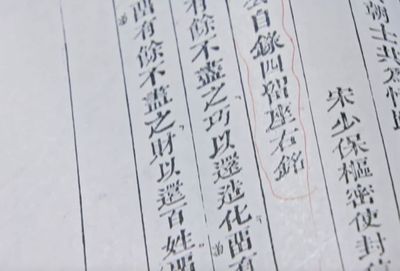 朝士共為
宋少保樞密使封
自錄四留座右銘
有餘不盡之巧以還造化留有
留有餘不盡之財以還百姓留